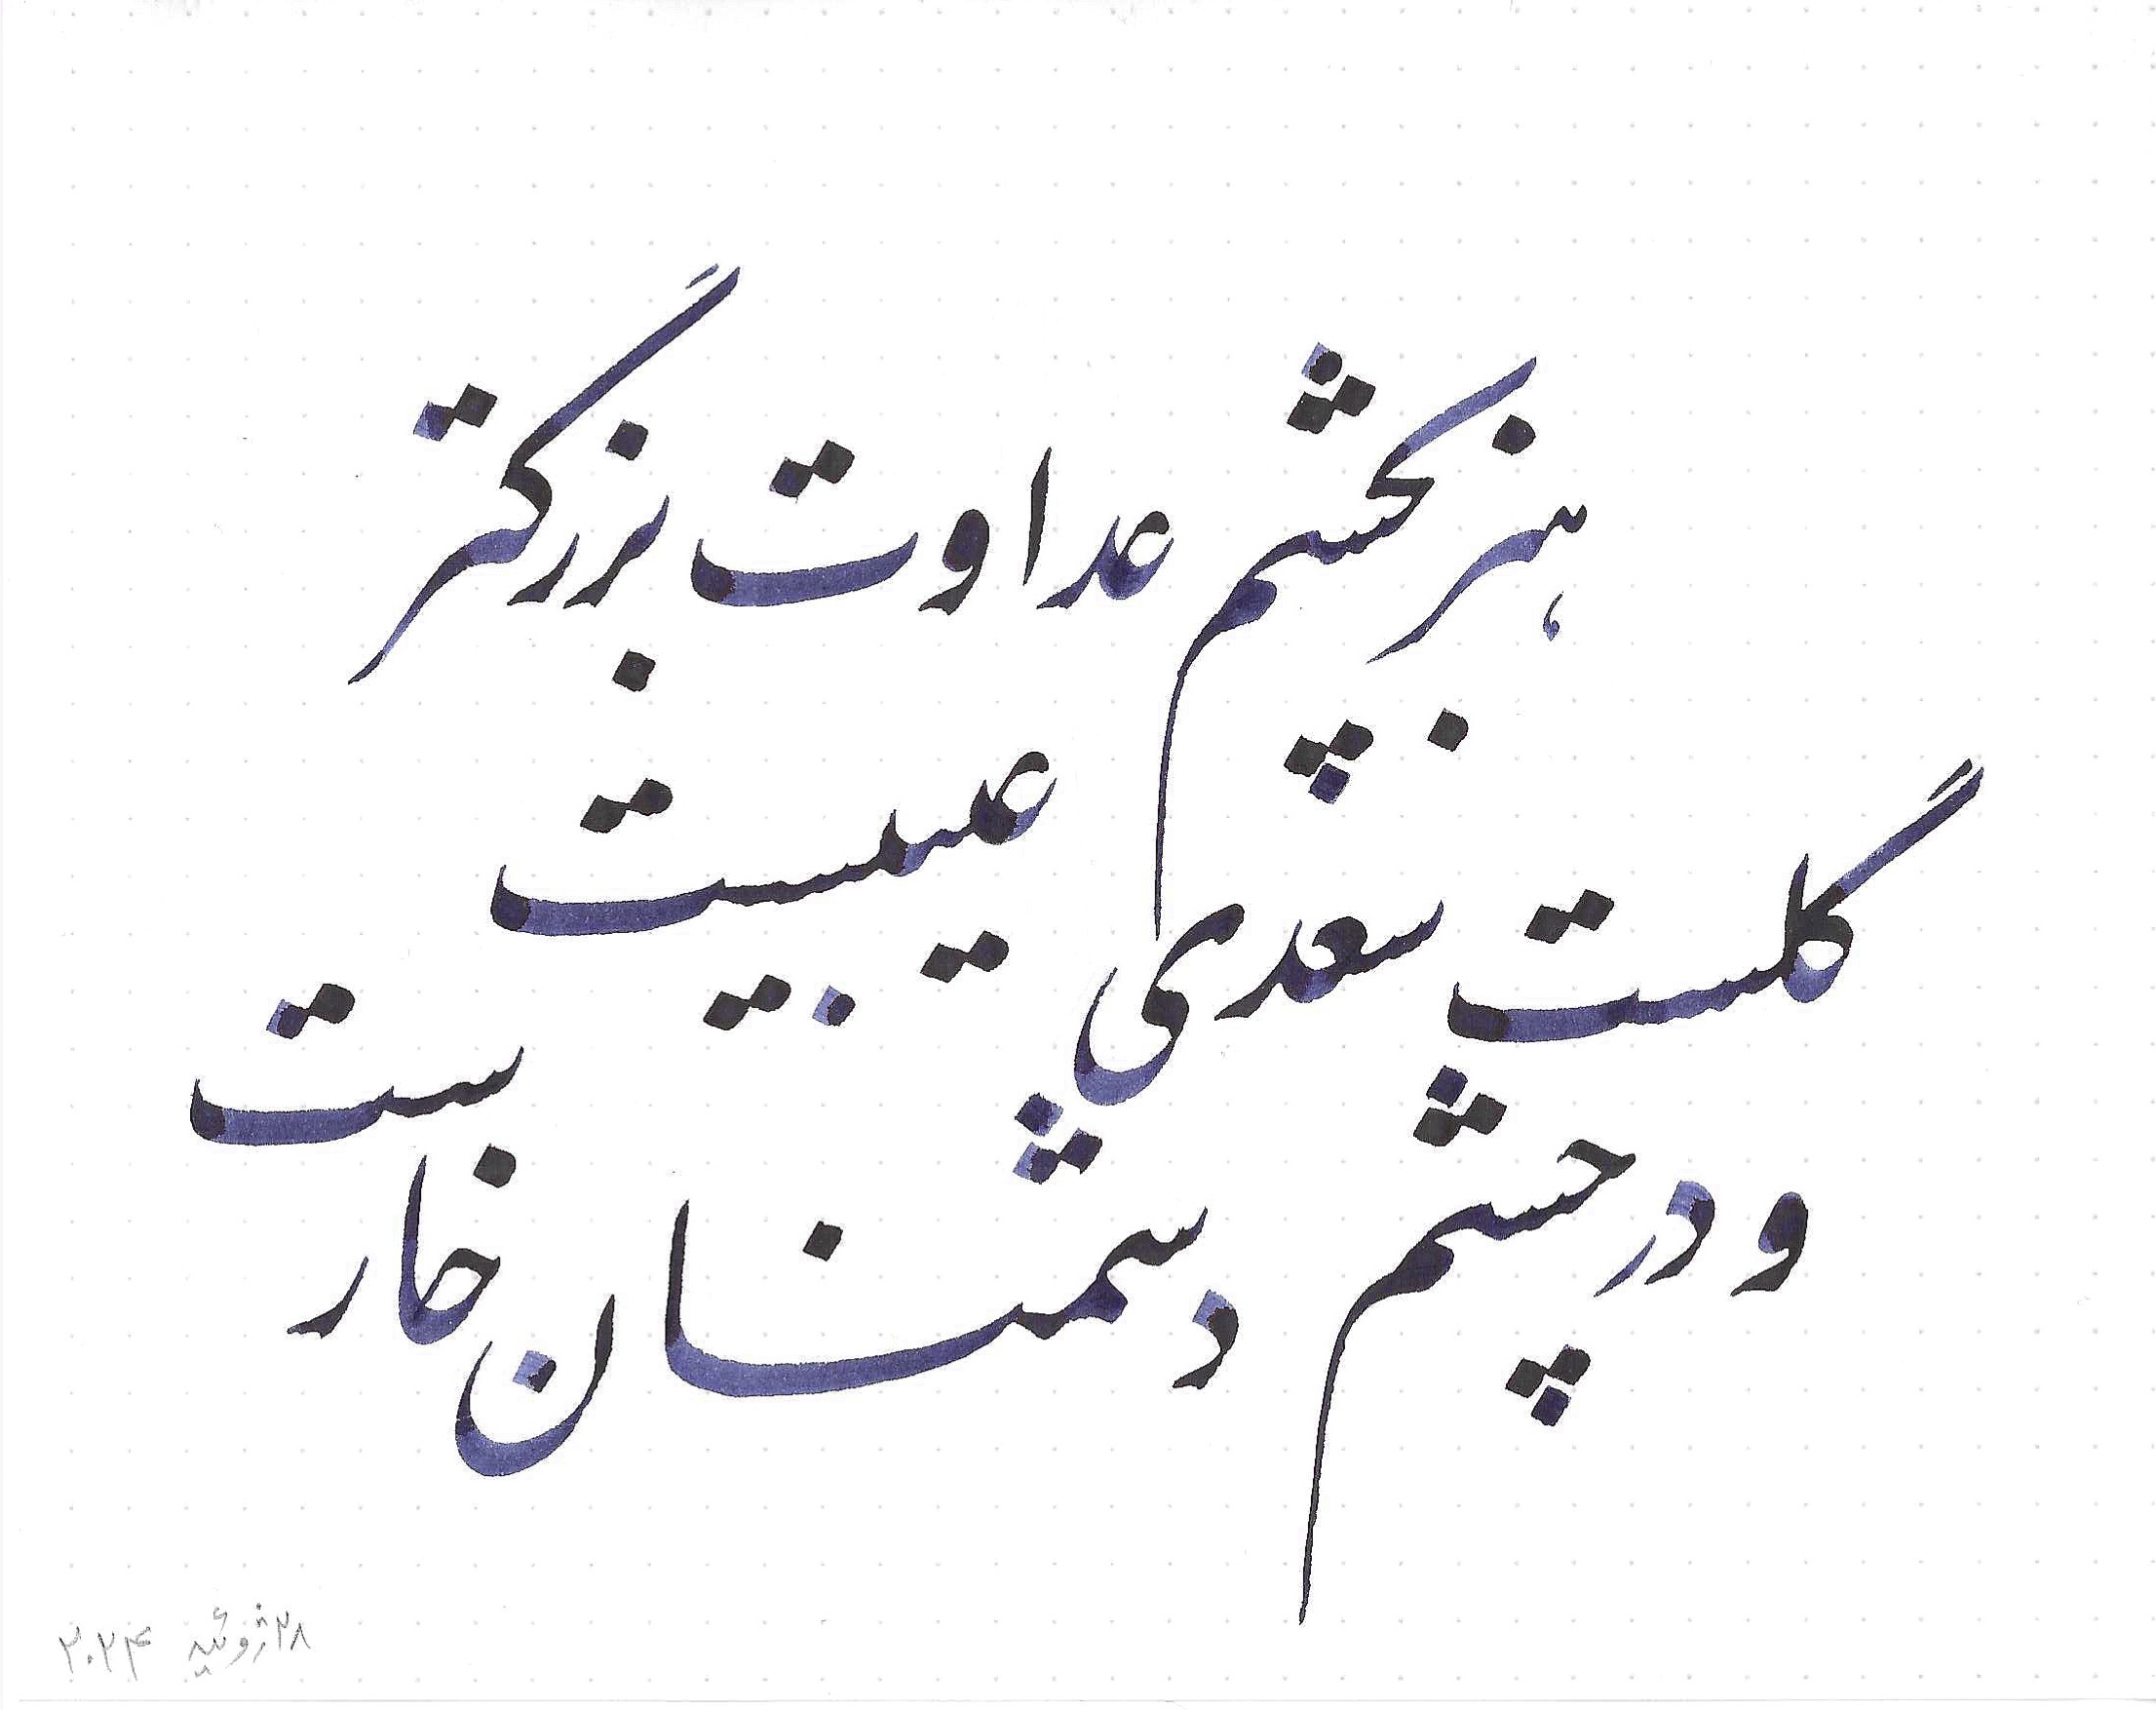 هنر بچشم عداوت بزرگتر
عیبیست
گلست سعدی
و در چشم دشمنان خارست
۲۸ ژوئیه ۲۰۲۴